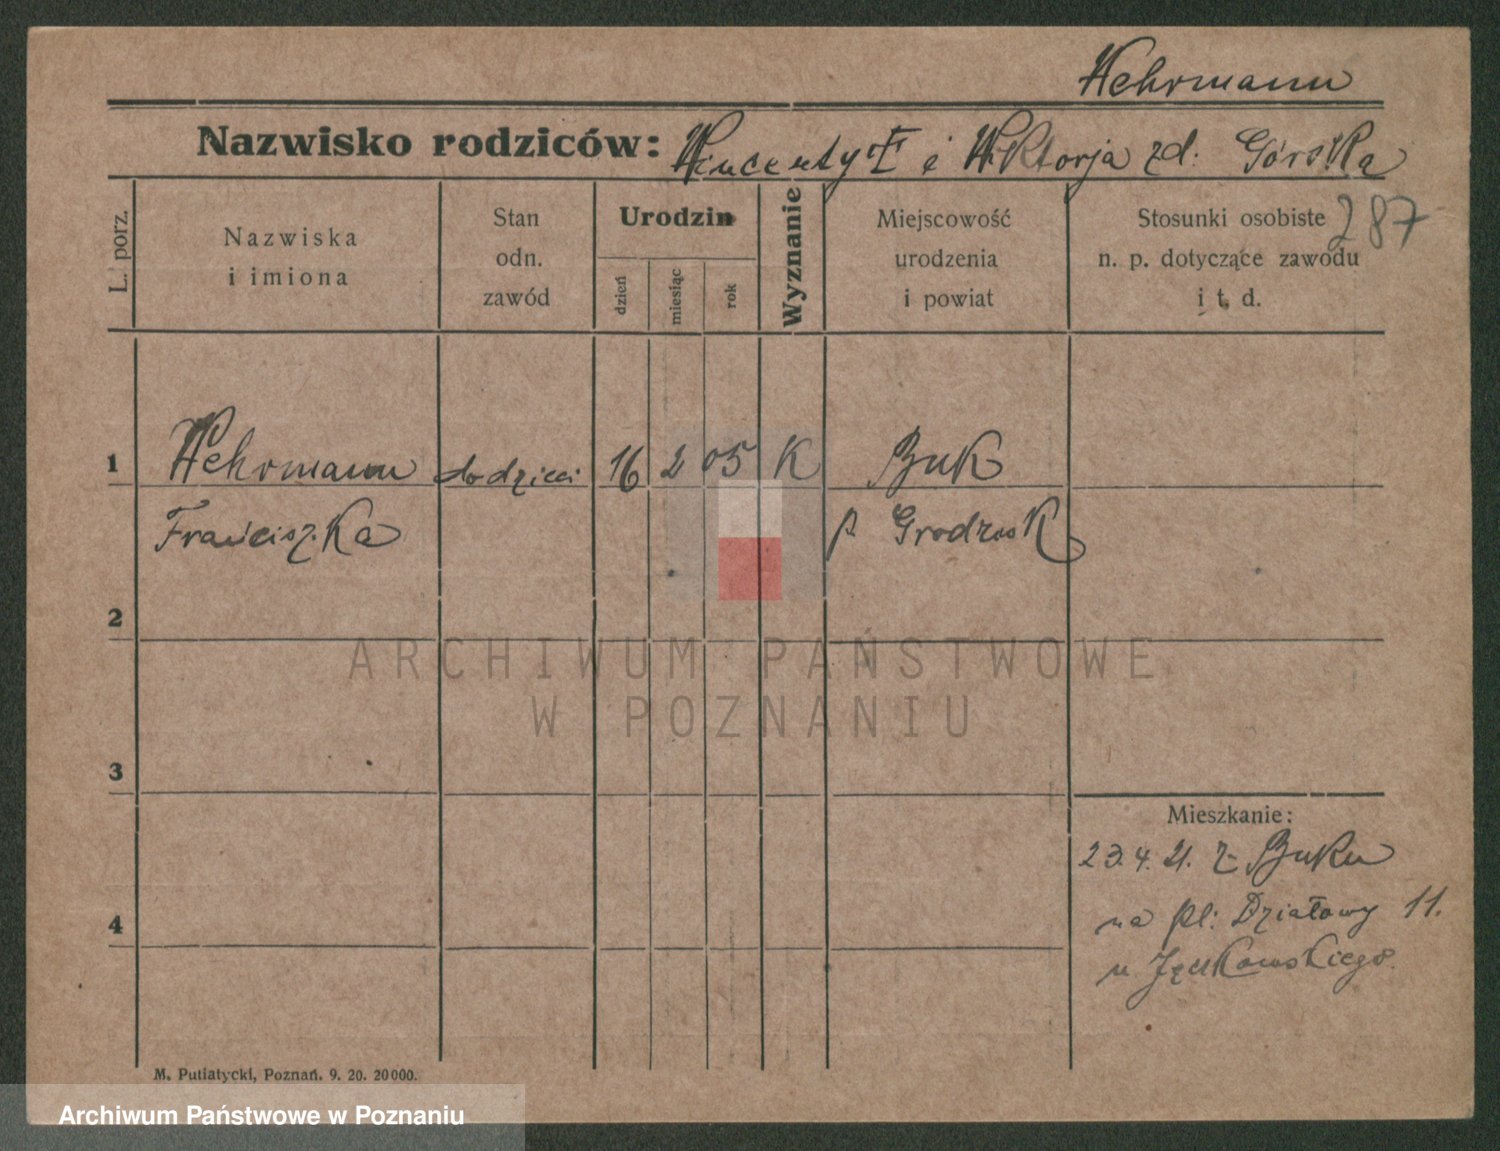 Wehrmann
Nazwisko rodziców: Wincenty † i Wiktorja zd. Górska
287
L. porz.
Nazwiska
i imiona
Stan
odn.
zawód
Urodzin
dzień
miesiąc
rok
Wyznanie
Miejscowość
urodzenia
i powiat
Stosunki osobiste
n. p. dotyczące zawodu
i t. d.
1 Wehrmann 16 2 05 K Buk
Franciszka p Grodzisk
2
ARCHIWUM PAŃSTWOWE
W POZNANIU
3
Mieszkanie:
23.4.21. z Buku
4
na pl. Działowy 11.
u
M. Putiatycki, Poznań. 9. 20. 20000.
Archiwum Państwowe w Poznaniu